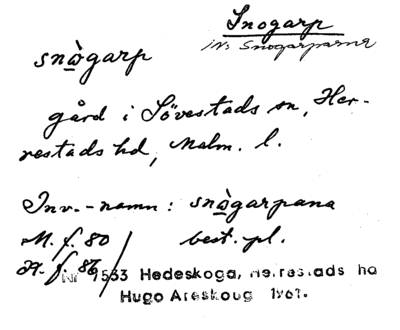 Snogarp
in: Snogarparna
sno̲̊garp
gård i Sövestads sn, Her-
restads hd, Malm. l.
Inv.-namn: snò̲garpana
M. f. 80 best. pl.
H. f. 86
Nr 1533 Hedeskoga, Herrestads hd
Hugo Areskoug 1961.